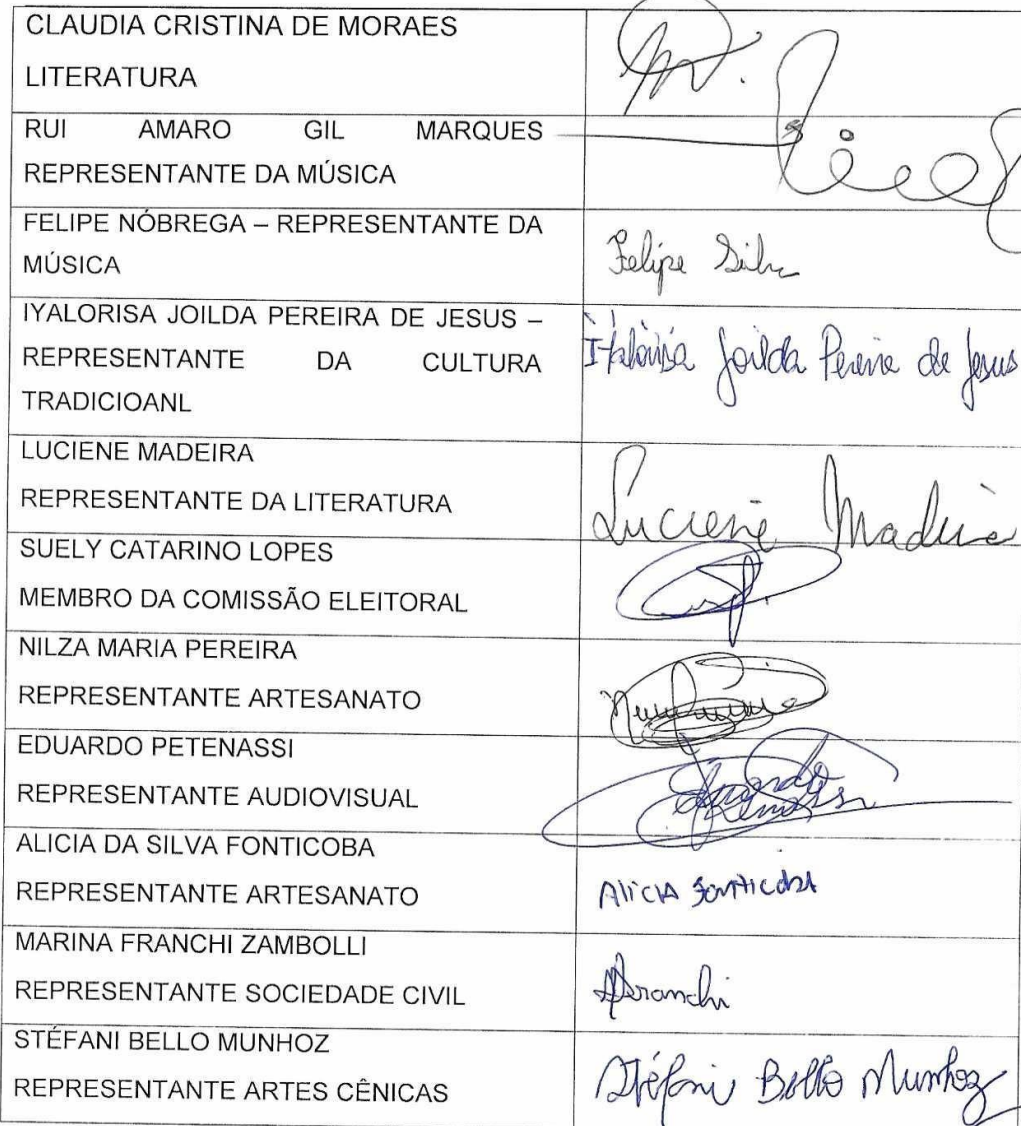 CLAUDIA CRISTINA DE MORAES
LITERATURA
RUI AMARO GIL MARQUES
REPRESENTANTE DA MÚSICA
FELIPE NÓBREGA – REPRESENTANTE DA
MÚSICA
Felipe Silva
IYALORISA JOILDA PEREIRA DE JESUS –
REPRESENTANTE DA CULTURA
TRADICIOANL
Joilda Pereira de Jesus
LUCIENE MADEIRA
REPRESENTANTE DA LITERATURA
Luciene Madeira
SUELY CATARINO LOPES
MEMBRO DA COMISSÃO ELEITORAL
NILZA MARIA PEREIRA
REPRESENTANTE ARTESANATO
EDUARDO PETENASSI
REPRESENTANTE AUDIOVISUAL
Eduardo
ALICIA DA SILVA FONTICOBA
REPRESENTANTE ARTESANATO
Alicia Fonticoba
MARINA FRANCHI ZAMBOLLI
REPRESENTANTE SOCIEDADE CIVIL
STÉFANI BELLO MUNHOZ
REPRESENTANTE ARTES CÊNICAS
Stéfani Bello Munhoz